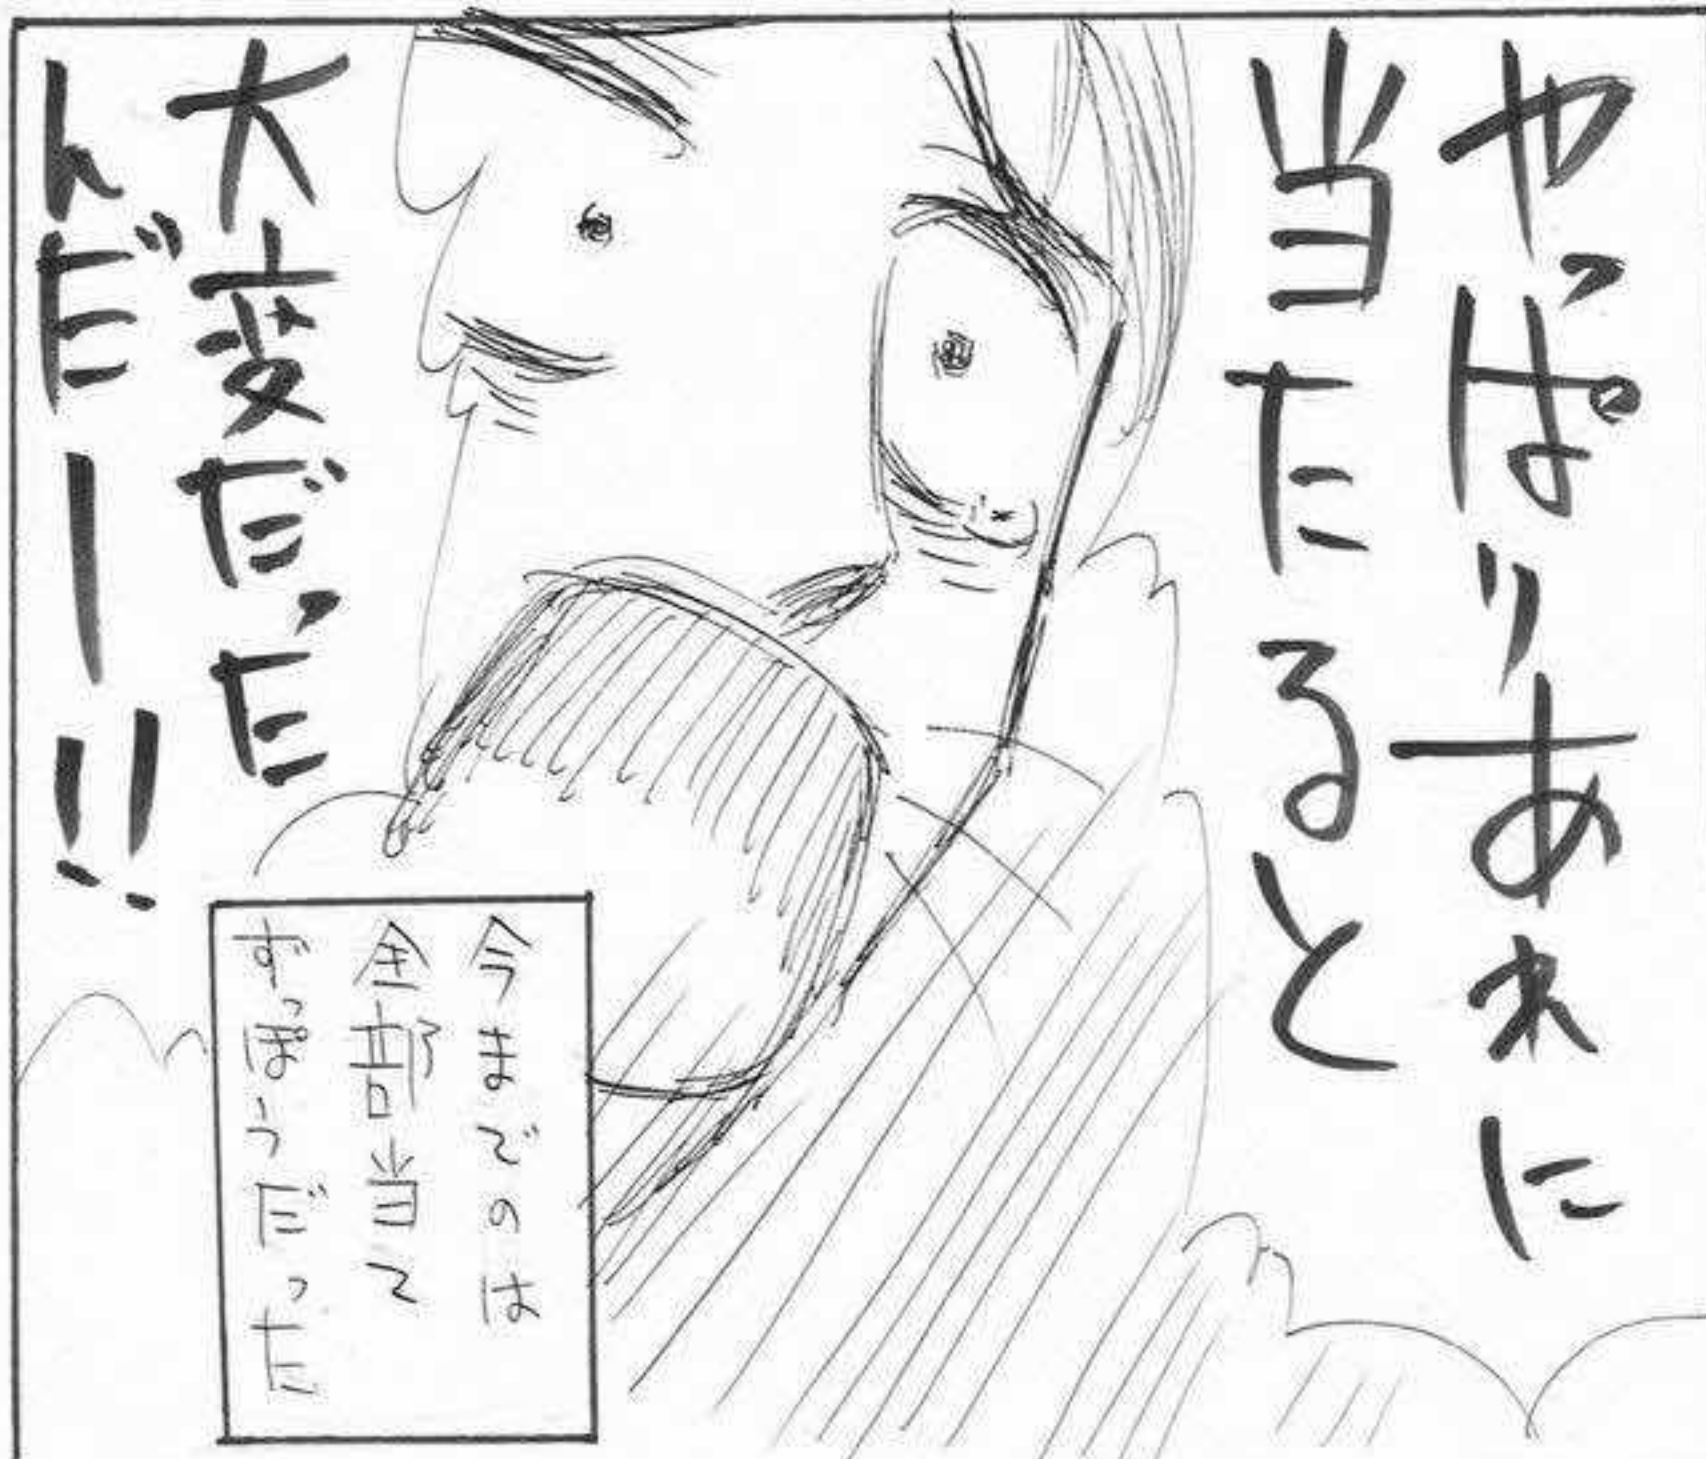 やっぱりあれに
当たると
大変だった
んだー!!
今までのは
全部当て
ずっぽうだった